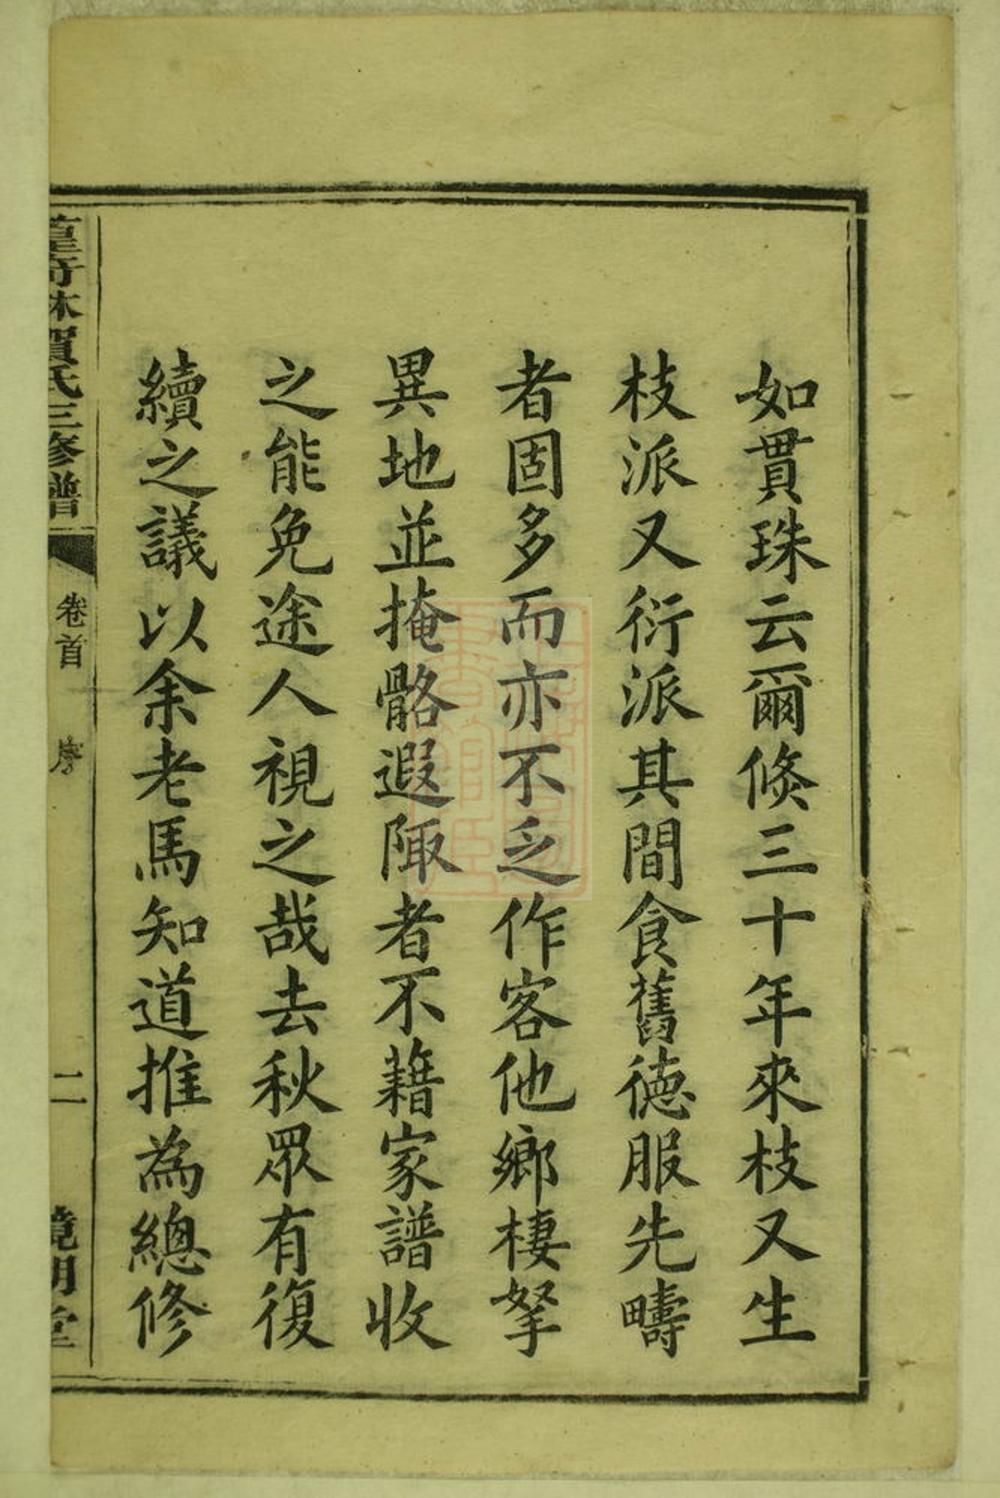 如貫珠云爾倐三十年來枝又生
枝派又衍派其間食舊德服先疇
者固多而亦不乏作客他鄉棲拏
異地並掩骼遐陬者不藉家譜收
之能免途人視之哉去秋眾有復
續之議以余老馬知道推為總修
賀氏三修譜
卷首
序
二
鏡湖堂